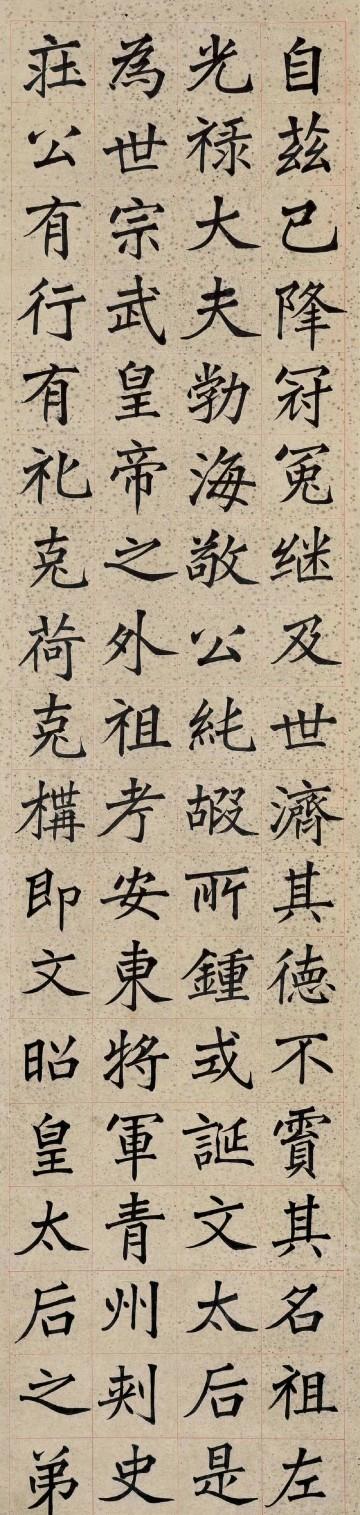 自茲已降冠冕继及世濟其德不霣其名祖左
光禄大夫勃海敬公純嘏所鍾式誕文太后是
為世宗武皇帝之外祖考安東將軍青州刺史
莊公有行有礼克荷克構即文昭皇太后之弟